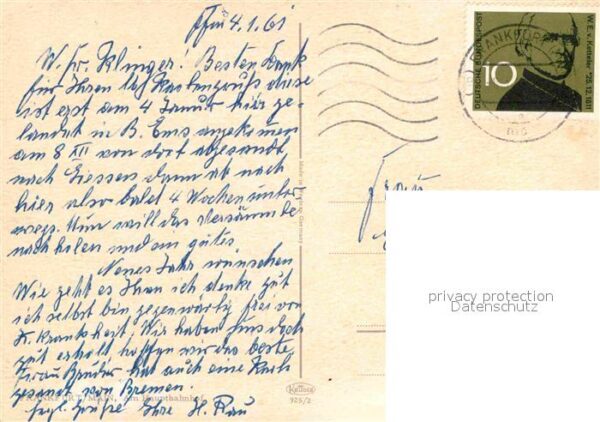 Ffm 4.1.61
W. Fr. Klinger. Besten Dank
für Ihren lb Kartengruß diese
ist erst am 4 Januar hier ge-
landet in B. Ems angekommen
am 8 XII von dort abgesandt
nach Giessen dann ab nach
hier also bald 4 Wochen unter
wegs. Nun will das versäumte
nach holen und ein gutes
Neues Jahr wünschen
Wie geht es Ihnen ich denke gut
ich selbst bin gegenwärtig frei von
Krankheit. Wir haben uns doch
gut erholt hoffen wir das beste
Frau Bruder hat auch eine Karte
gesandt von Bremen.
FRANKFURT/MAIN, Am Hauptbahnhof
frdl. Grüße Ihre H. Rau
Frau
DEUTSCHE BUNDESPOST
10
W. E. v. Ketteler *25.12.1811
FRANKFURT
privacy protection
Datenschutz
Krüger
925/2